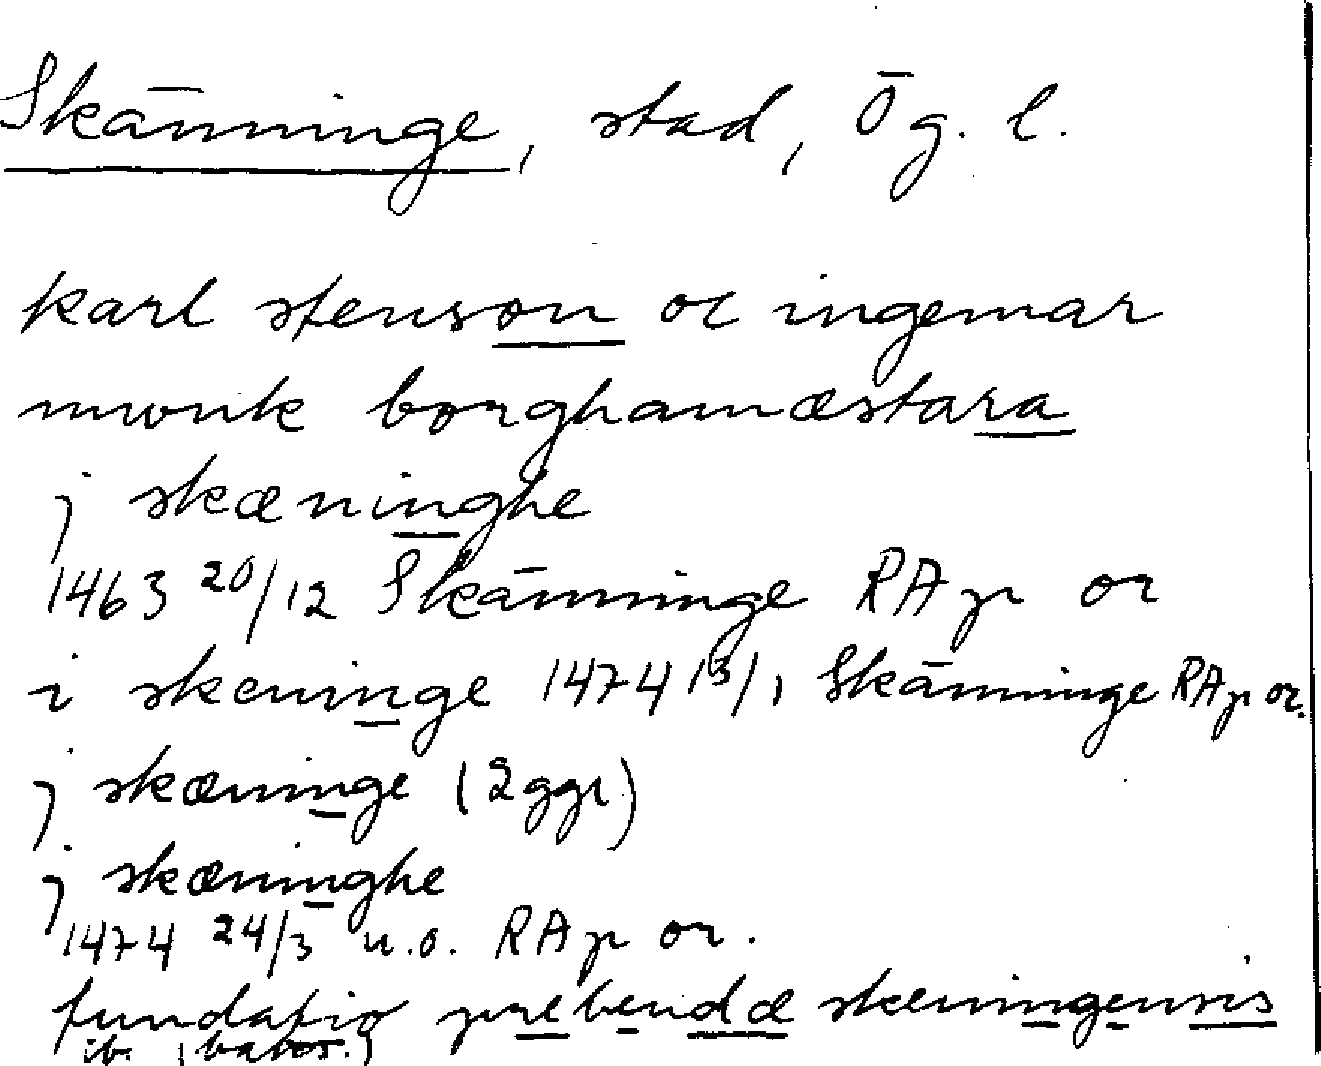 Skänninge, stad, Ög. l.
karl stenson oc ingemar
mwnk borghamæstara
j skæninghe
1463 20/12 Skänninge RAp or
i skeninge 1474 13/1 Skänninge RAp or.
j skæninge (2 ggr)
j skæninghe
1474 24/3 u.o. RAp or.
fundatio prebendæ skeningensis
ib.